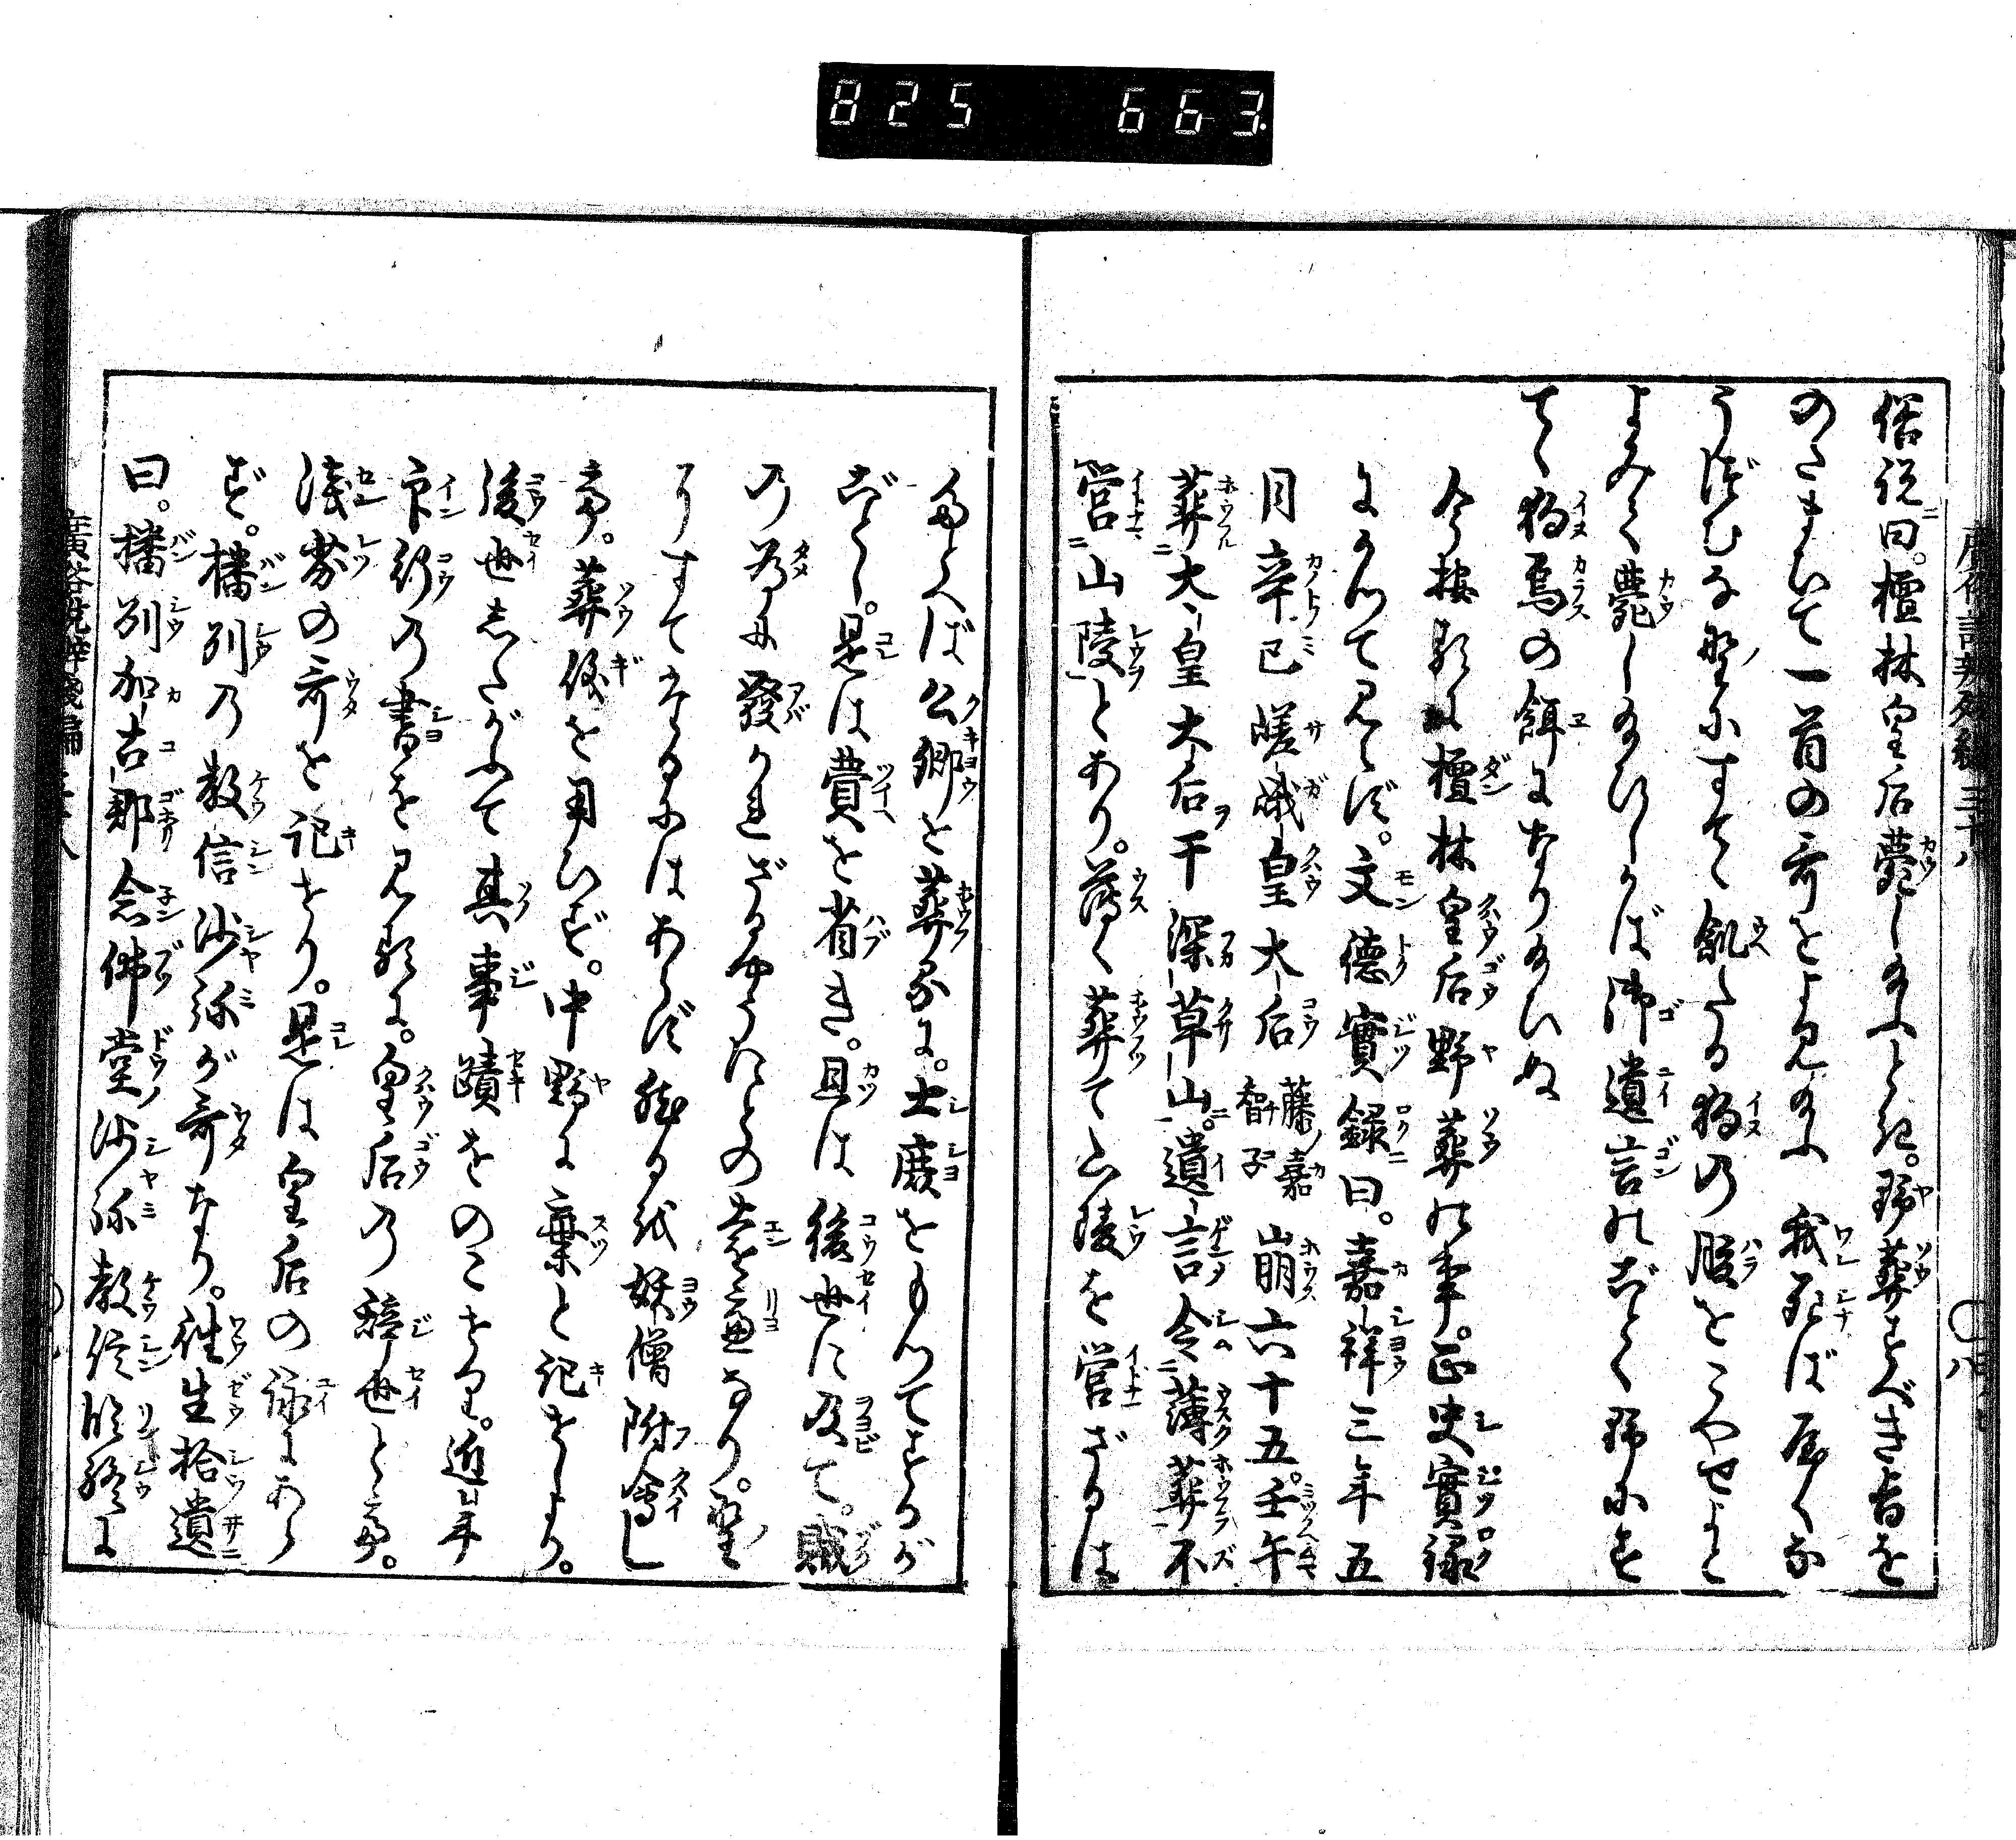 825 663.
俗説曰。檀林皇后薨し給ふとき。野葬すべき旨を
のたまひて一首の哥をよみ給ふ 我死ば屋くな
うづむな野にすてゝ飢たる狗の腹をこやせよと
よみて薨し給ひしかば御遺言のごとく野にす
てゝ狗烏の餌になり給ひぬ
今按ずるに檀林皇后野葬の事。正史實録
によつて見えず。文德實録曰。嘉祥三年五
月辛巳嵯峨皇太后藤嘉智子崩六十五。壬午
葬大皇大后于深草山。遺言令薄葬不
営山陵とあり。薄く葬て山陵を営ざるは
たとへば公卿を葬るに。士庶をもつてするが
ごとし。是は費を省き。且は後世に及て。賊
の為に發かれざるやうにとの遠慮なり。野
にすてたるにはあらず然るを妖僧附會し
て。葬儀を用ひず。中野に棄と記せしより。
後世したがふて其事蹟をのこせり。近年
印行の書を見るに。皇后の辞世とて。
浅劣の哥を記せり。是は皇后の詠にあら
ず。播州の教信沙弥が哥なり。往生拾遺
曰。播州加古郡念佛堂沙弥教信臨終に
廣俗説辯殘編